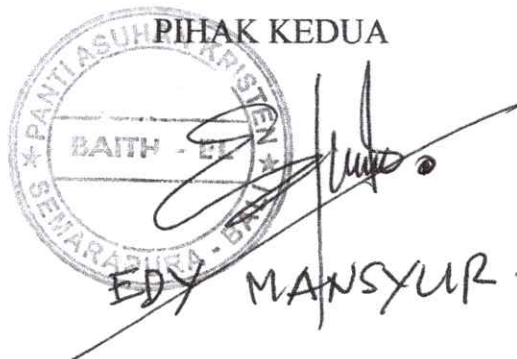 PIHAK KEDUA
PANTI ASUHAN KRISTEN
BAITH - EL
SEMARAPURA - BALI
EDY MANSYUR.